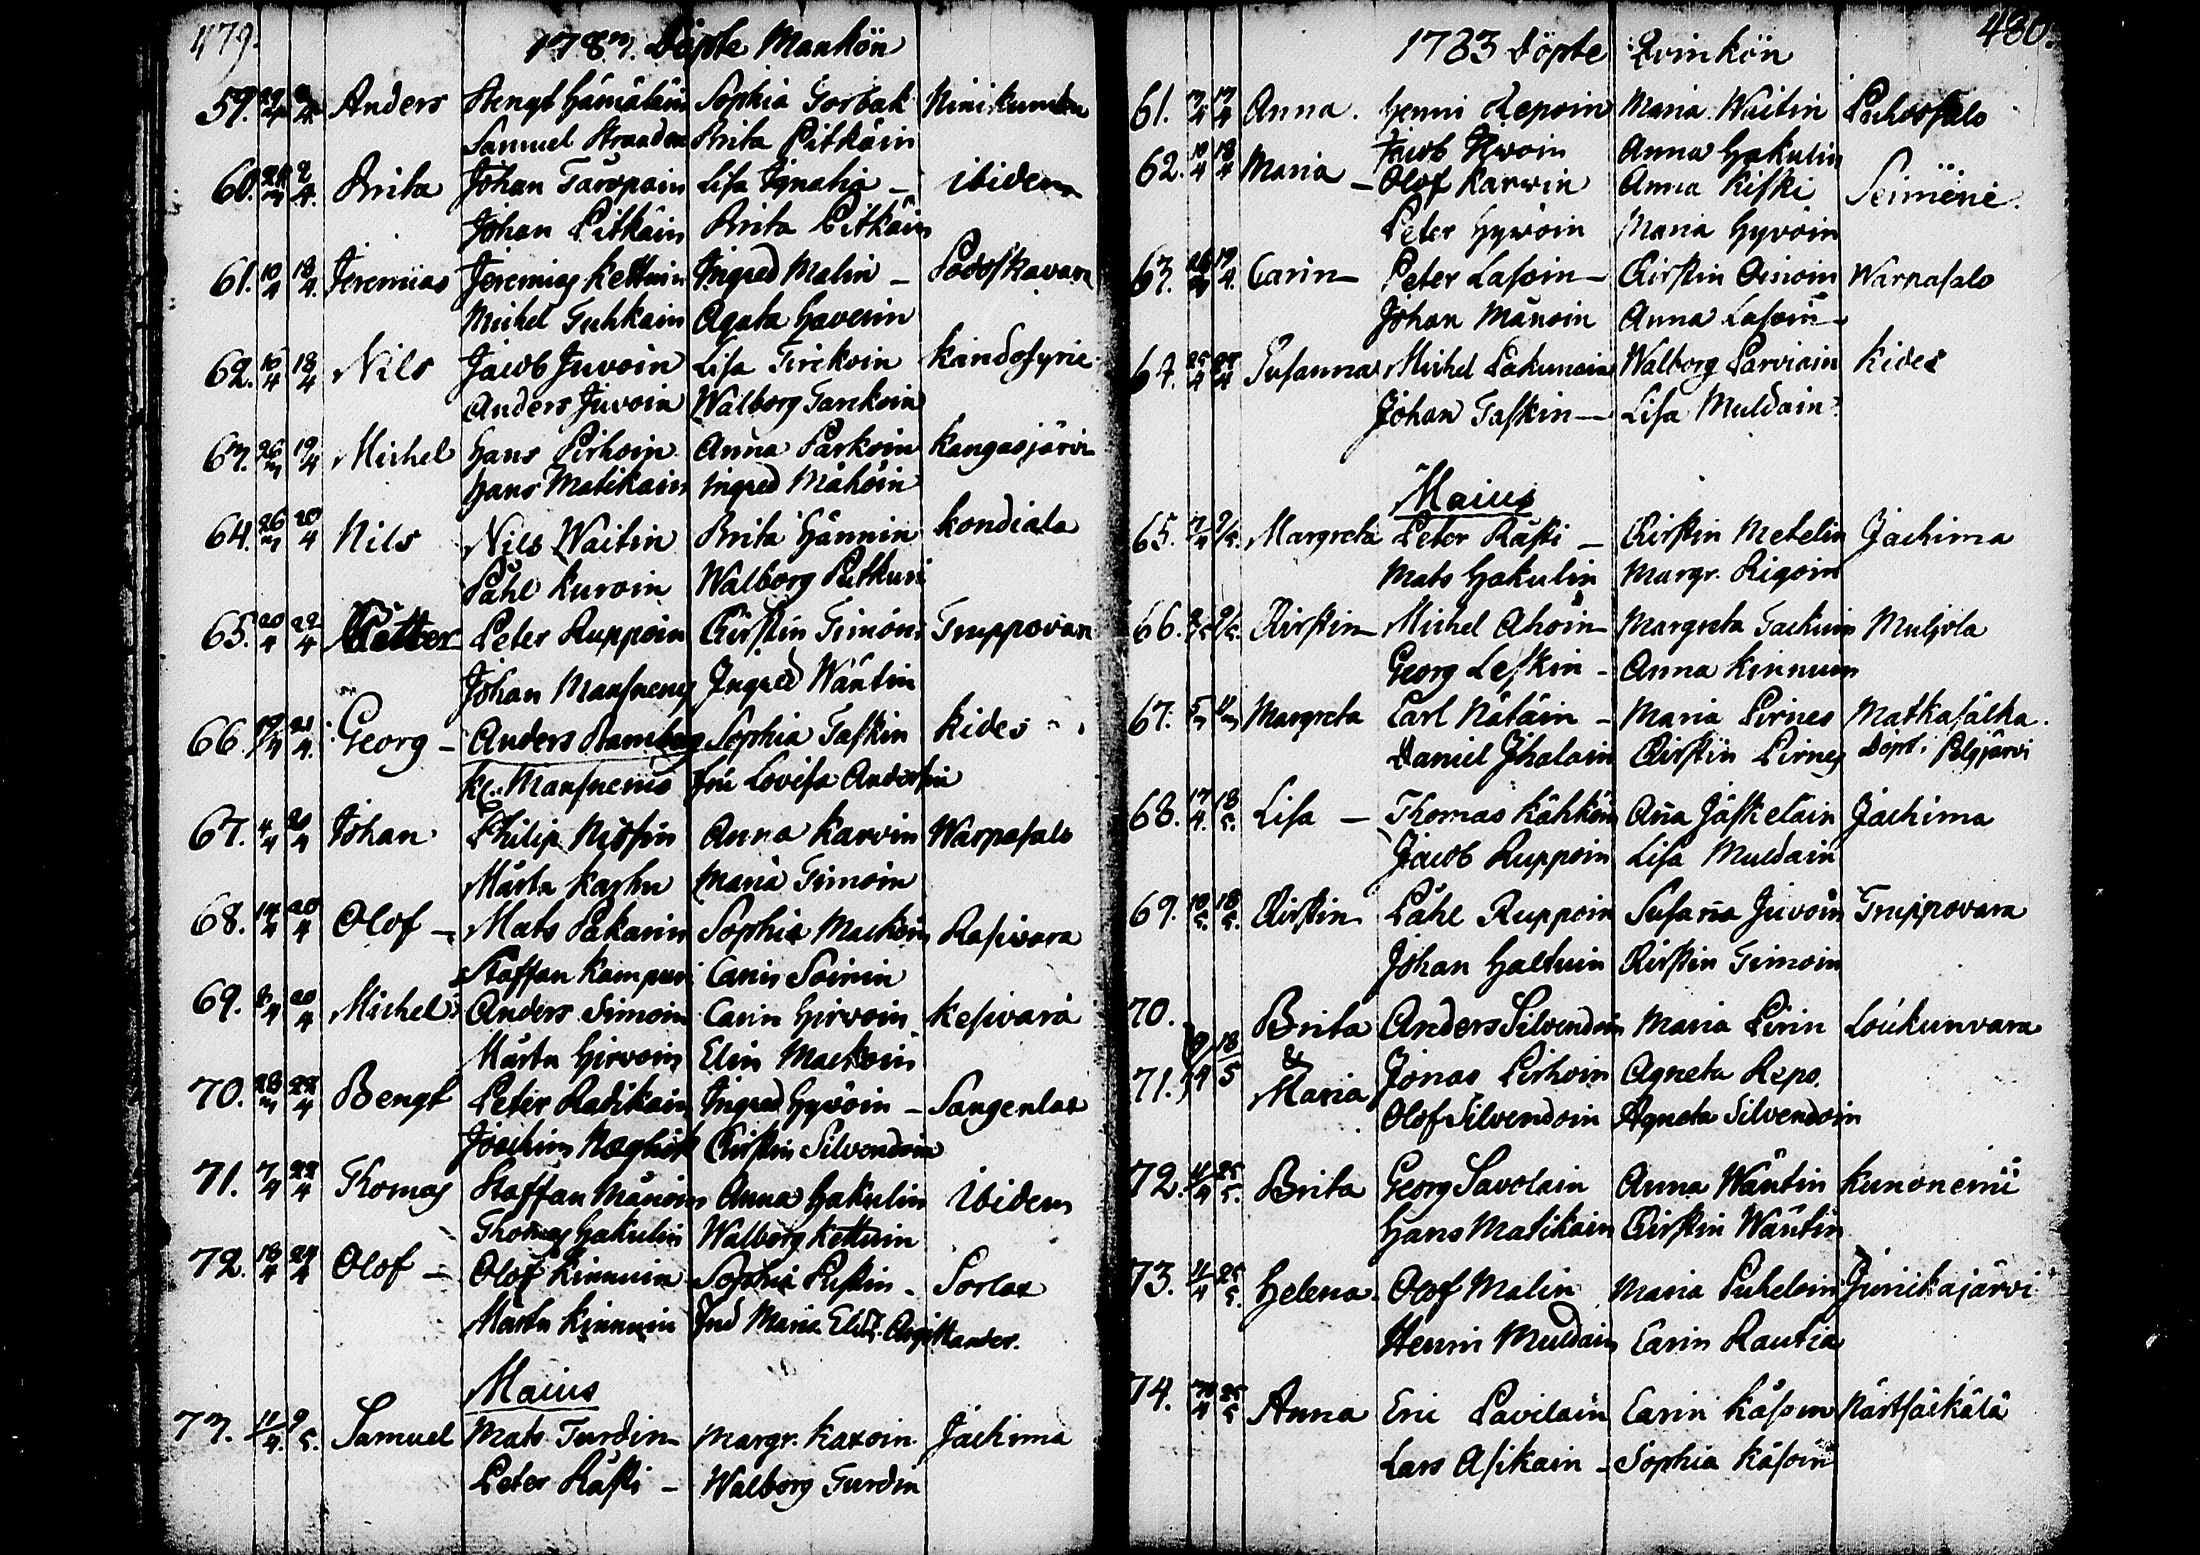 479.
1783. Döpte Mankön
59. 29/3 2/4 Anders Bengt Hämäläin Sophia Torvak Ninikumbu
Samuel Strandén Brita Pitkäin
60. 28/3 2/4. Brita Johan Taropain Lisa Ignatia – ibidem
Johan Pitkäin Brita Pitkäin
61. 10/4 18/4. Jeremias Jeremias Kettuin Ingred Malin – Podoskavara
Michel Tuhkain Agata Haverin
62. 16/4 18/4 Nils Jacob Juvoin Lisa Tirckoin Kandosyrie
Anders Juvoin Walborg Tarckoin
63. 26/3 19/4 Michel Hans Pirhoin Anna Parkoin Kangasjärvi
Hans Matikain Ingred Mähöin
64. 26/3 20/4 Nils Nils Waitin Brita Hännin Kondiala
Påhl Kuroin Walborg Putkuri
65. 20/4 22/4 Petter Peter Ruppoin Kirstin Timoin Truppovara
Johan Mansneng Ingred Wäntin
66. 19/4 21/4. Georg – Anders Ramberg Sophia Taskin Kides
Kp. Mansnenis fru Lovisa Anderssin
67. 4/4 20/4 Johan Philip Nissin Anna Karvin Warpasalo
Märta Karhu Maria Timoin
68. 14/4 20/4 Olof – Mats Pakarin Sophia Mackoin Rasivara
Staffan Kampuri Carin Soinin
69. 8/4 20/4 Michel Anders Simoin Carin Hirvoin Kesivara
Märta Hirvoin Elin Mackoin
70. 28/3 22/4 Bengt Peter Radikain Ingred Hyvöin – Sangenlax
Joachim Neglick Kirstin Silvendoin
71. 7/4 22/4 Thomas Staffan Mänöin Anna Hakulin Ibidem
Thomas Hakulin Walborg Kettuin
72. 18/4 24/4 Olof – Olof Kinnuin Sophia Puskin – Sorlax
Märta Kinnuin Jud Maria Elis. Argillander.
Maius
73. 11/4. 9/5. Samuel Mats Turdin Margr. Karoin Jachima
Peter Räski – Walborg Turdin
480.
1783 Döpte Qvinkön
61. 17/4 17/4 Anna. Henri Repoin Maria Waitin Puhossalo
Jacob Hivoin Anna Hakulin
62. 10/4 18/4 Maria – Olof Karvin Anna Kiski Seimeni.
Peter Hyvöin Maria Hyvöin
63. 26/3 19/4. Carin – Peter Lasoin – Kirstin Oinoin Warpasalo
Johan Mänöin Anna Lasoin
64. 25/4 27/4 Susanna Michel Pakunain Walborg Parviain Kides
Johan Taskin – Lisa Muldain
Maius
65. 7/4 9/5. Margreta Peter Räski – Kirstin Metelin Jachima
Mats Hakulin Margr. Rigoin
66. 8/5 9/5. Kirstin – Michel Ahoin – Margreta Tackuin Muljola
Georg Leskin – Anna Kinnuin
67. Margreta Carl Nätäin – Maria Pirnes Matkasälka.
Daniel Ihalain Kirstin Pirnes Döpt i Pelgjärvi
68. 17/4. 18/5. Lisa – Thomas Kähköin Aña Jäskeläin Jachima
Jacob Ruppoin Lisa Muldain
69. 10/5. 18/5. Kirstin Påhl Ruppoin Susaña Juvoin Truppovara
Johan Haltuin Kirstin Timoin
70. Brita Anders Silvendoin Maria Pirin Loukunvara
19/4 18/5 & Jonas Pirhoin Agneta Repo
71. Maria Olof Silvendoin Agneta Silvendoin
72. 11/4 25/5. Brita Georg Savolain Anna Wäntin Kunonemi
Hans Matikain Kirstin Wäntin
73. 11/4 25/5. Helena Olof Malin Maria Puheloin Juurikajärvi
Henric Muldain Carin Rautia
74. 30/4 25/5 Anna Eric Pavilain Carin Käsoin Närtsäkälä
Lars Asikain – Sophia Käsoin